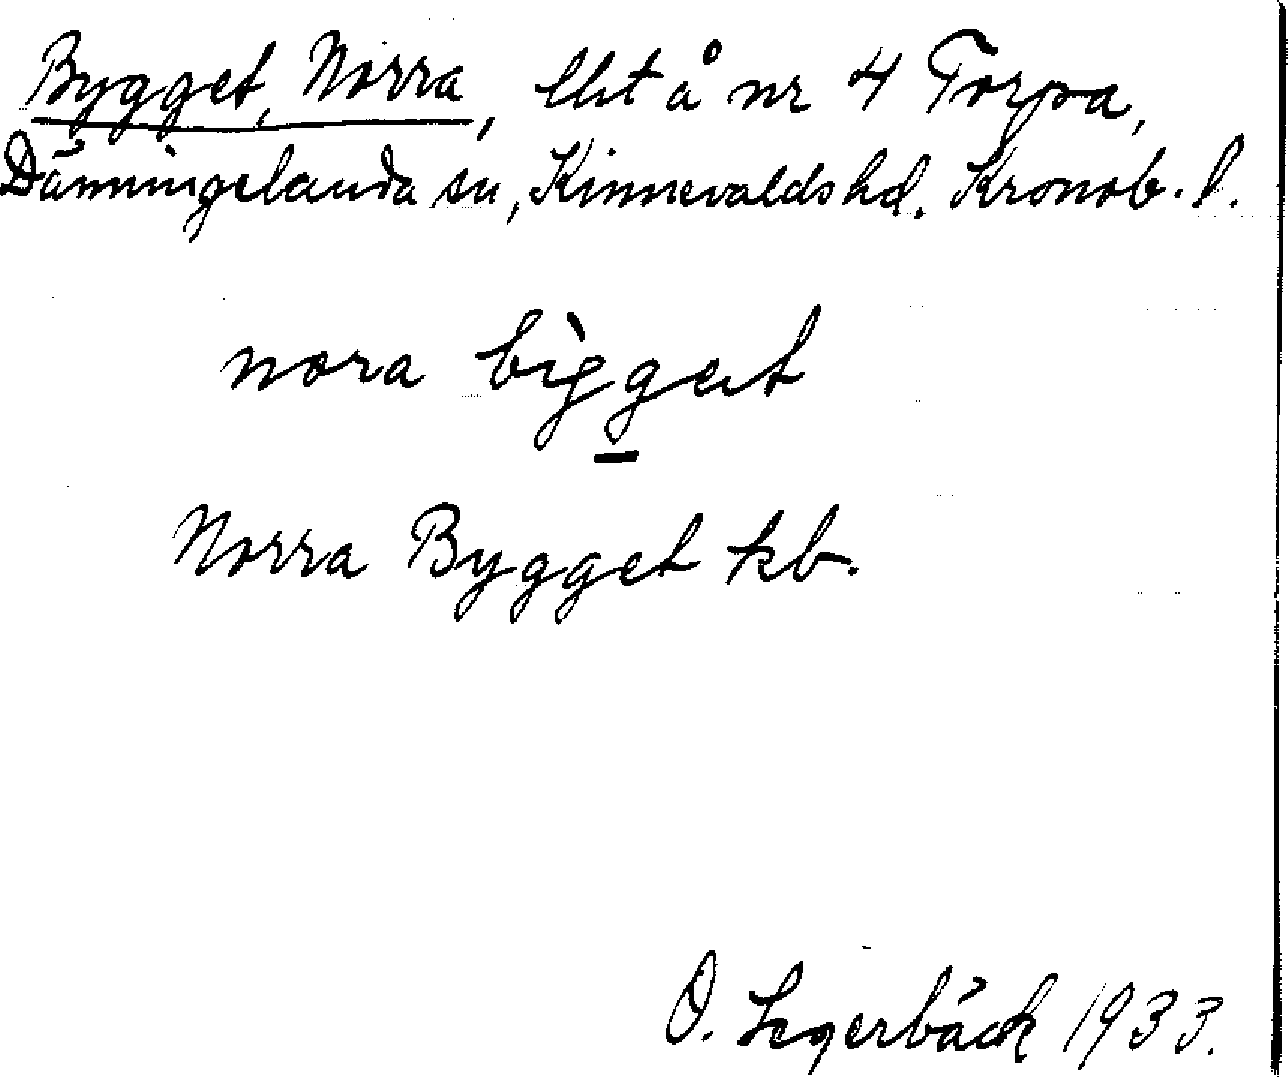 Bygget, Norra, lht å nr 4 Torpa,
Dänningelanda sn, Kinnevalds hd. Kronob. l.
nora bìggət
Norra Bygget kb.
O. Legerbäck 1933.